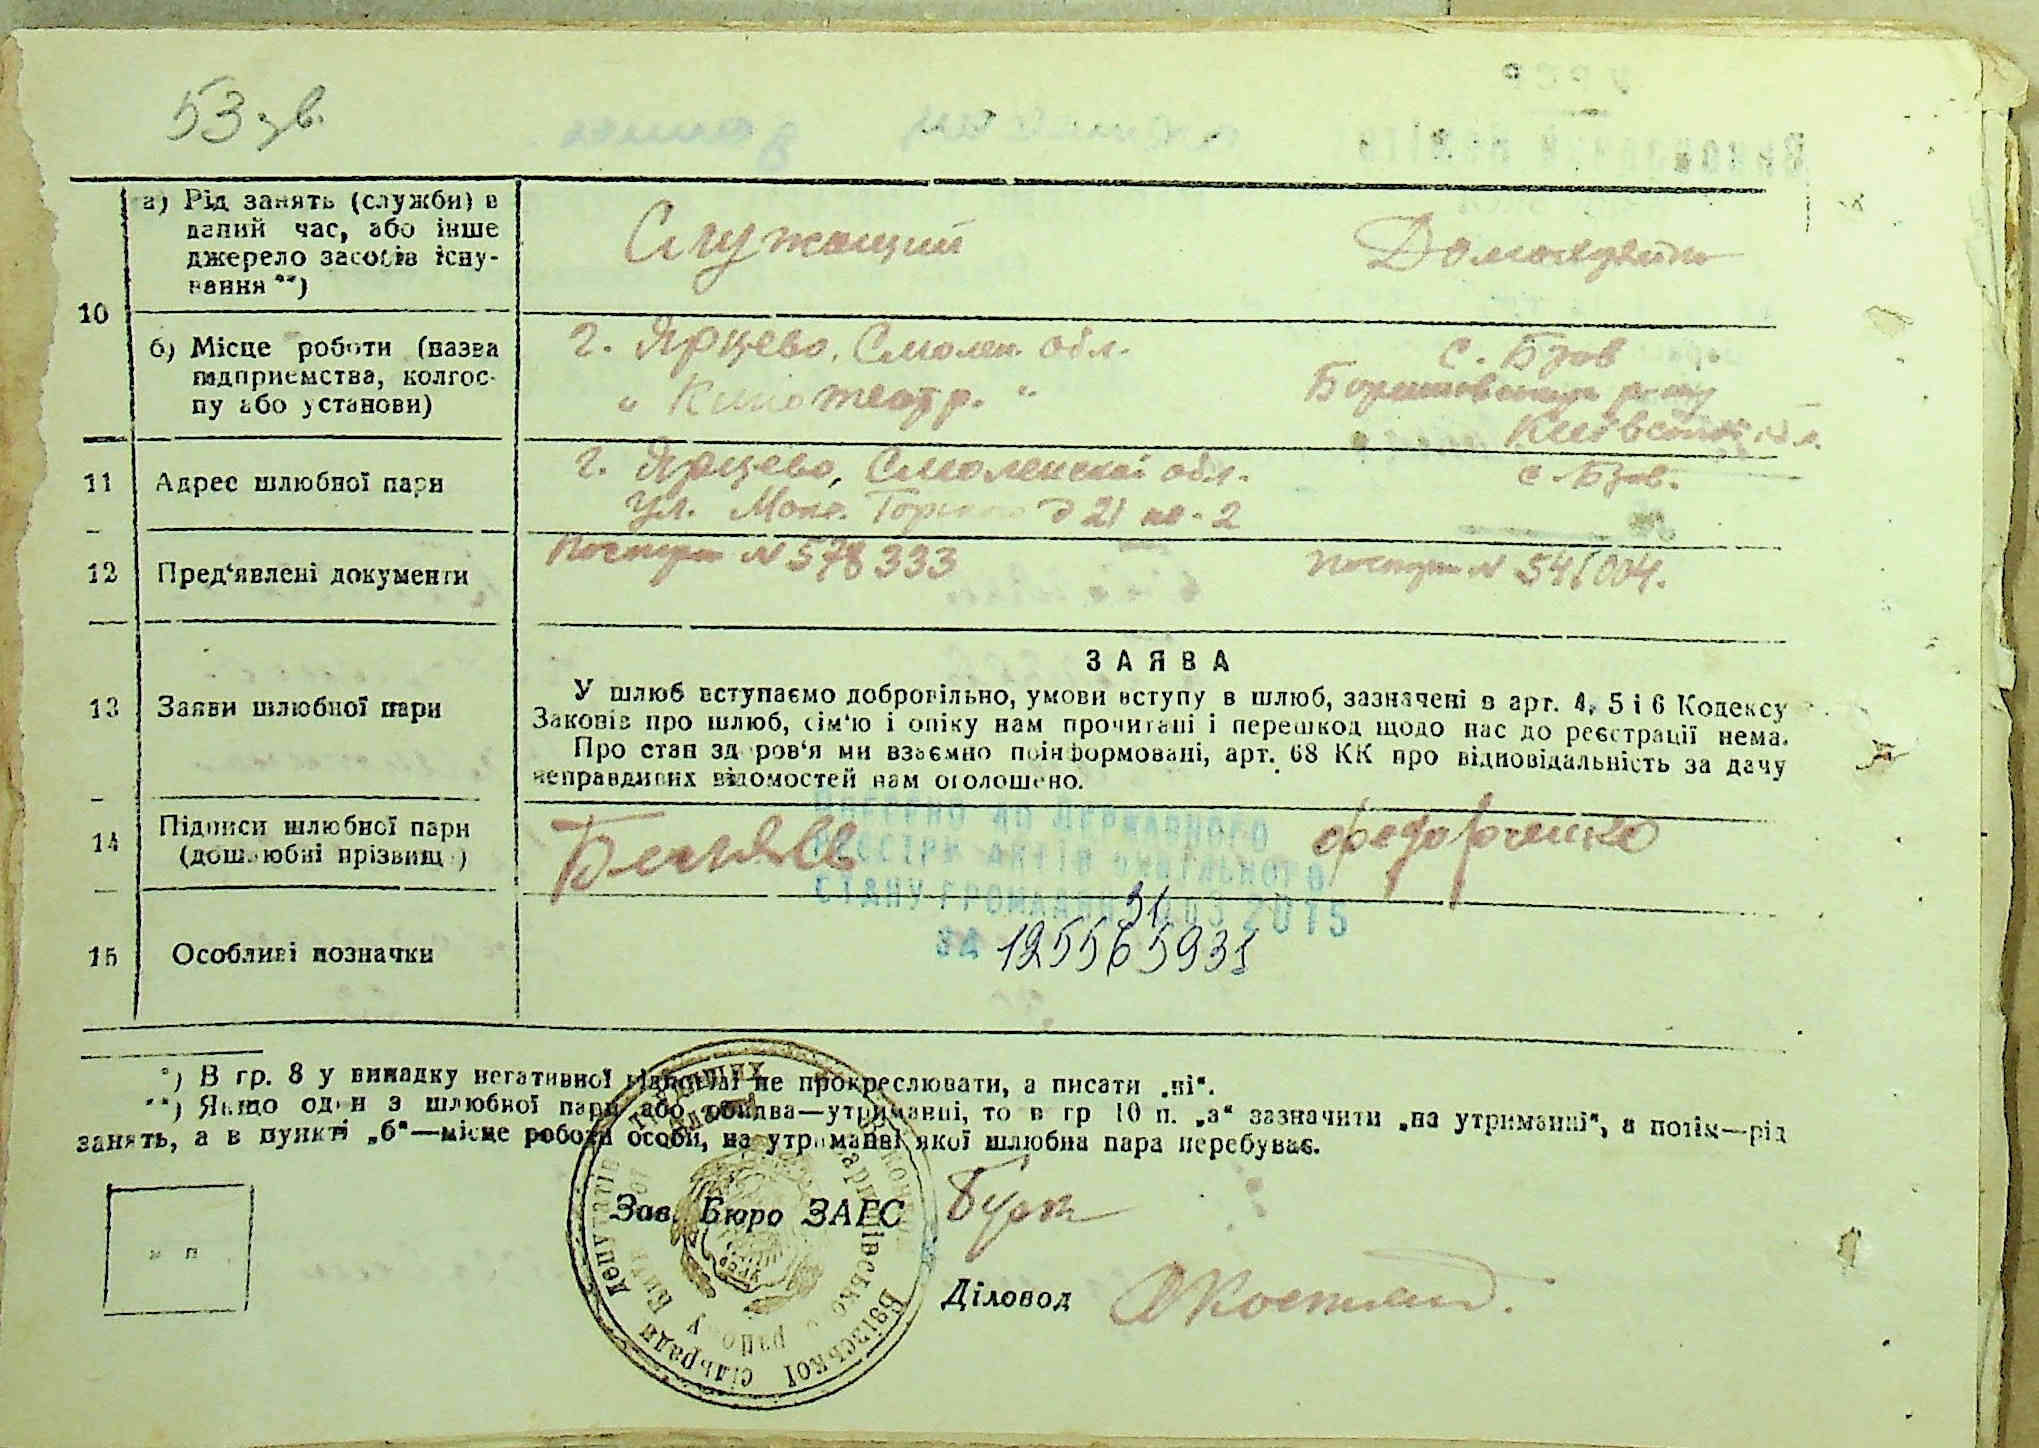 53 зв.
10
а) Рід занять (служби) в
даний час, або інше
джерело засобів існу-
вання **)
Служащий
б) Місце роботи (назва
підприємства, колгос-
пу або установи)
г. Ярцево, Смолен. обл.
„ Кинотеатр. “
с. Бзов
11 Адрес шлюбної пари
г. Ярцево, Смоленской обл.
ул. Макс. Горького д 21 кв-2
с. Бзов.
12 Пред‘явлені документи
Паспорт № 578333
Паспорт №
13 Заяви шлюбної пари
ЗАЯВА
У шлюб вступаємо добровільно, умови вступу в шлюб, зазначені в арт. 4, 5 і 6 Кодексу
Законів про шлюб, сім‘ю і опіку нам прочитані і перешкод щодо нас до реєстрації нема.
Про стан здоров‘я ми взаємно поінформовані, арт. 68 КК про відповідальність за дачу
неправдивих відомостей нам оголошено.
14 Підписи шлюбної пари
(дошлюбні прізвища)
Федорченко
ВНЕСЕНО ДО ДЕРЖАВНОГО
РЕЄСТРУ АКТІВ ЦИВІЛЬНОГО
СТАНУ ГРОМАДЯН 2015
31
ЗА
15 Особливі позначки
*) В гр. 8 у випадку негативної відповіді не прокреслювати, а писати „ні“.
**) Якщо один з шлюбної пари або обидва—утриманці, то в гр 10 п. „а“ зазначити „на утриманні“, а потім—рід
занять, а в пункті „б“—місце роботи особи, на утриманні якої шлюбна пара перебуває.
м п
Зав. Бюро ЗАГС
Діловод
депутатів трудящих
Бзівської сільради
УРСР